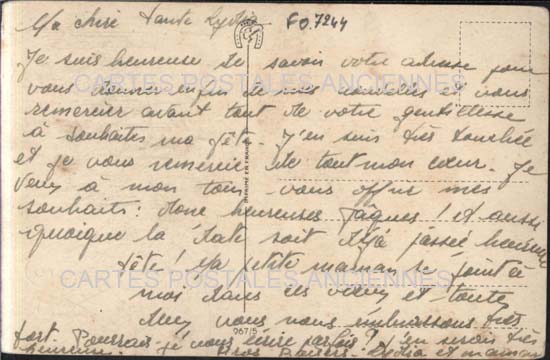 Ma chère Tante Lydia
FO.7244
Je suis heureuse de savoir votre adresse pour
vous donner enfin de mes nouvelles et vous
remercier avant tout de votre gentillesse
à souhaiter ma fête. J'en suis très touchée
et je vous remercie de tout mon cœur. Je
veux à mon tour vous offrir mes
souhaits: donc heureuses Pâques! et aussi
quoique la date soit déjà passée heureuse
fête! Ma petite maman se joint à
moi dans ces vœux et toutes
deux nous vous embrassons très
fort. Pourrais-je vous écrire parfois? J'en serais très
heureuse. Gros Baisers. Lydia et maman
IMPRIMÉ EN FRANCE
967/5
CARTES POSTALES ANCIENNES
CARTES POSTALES ANCIENNES